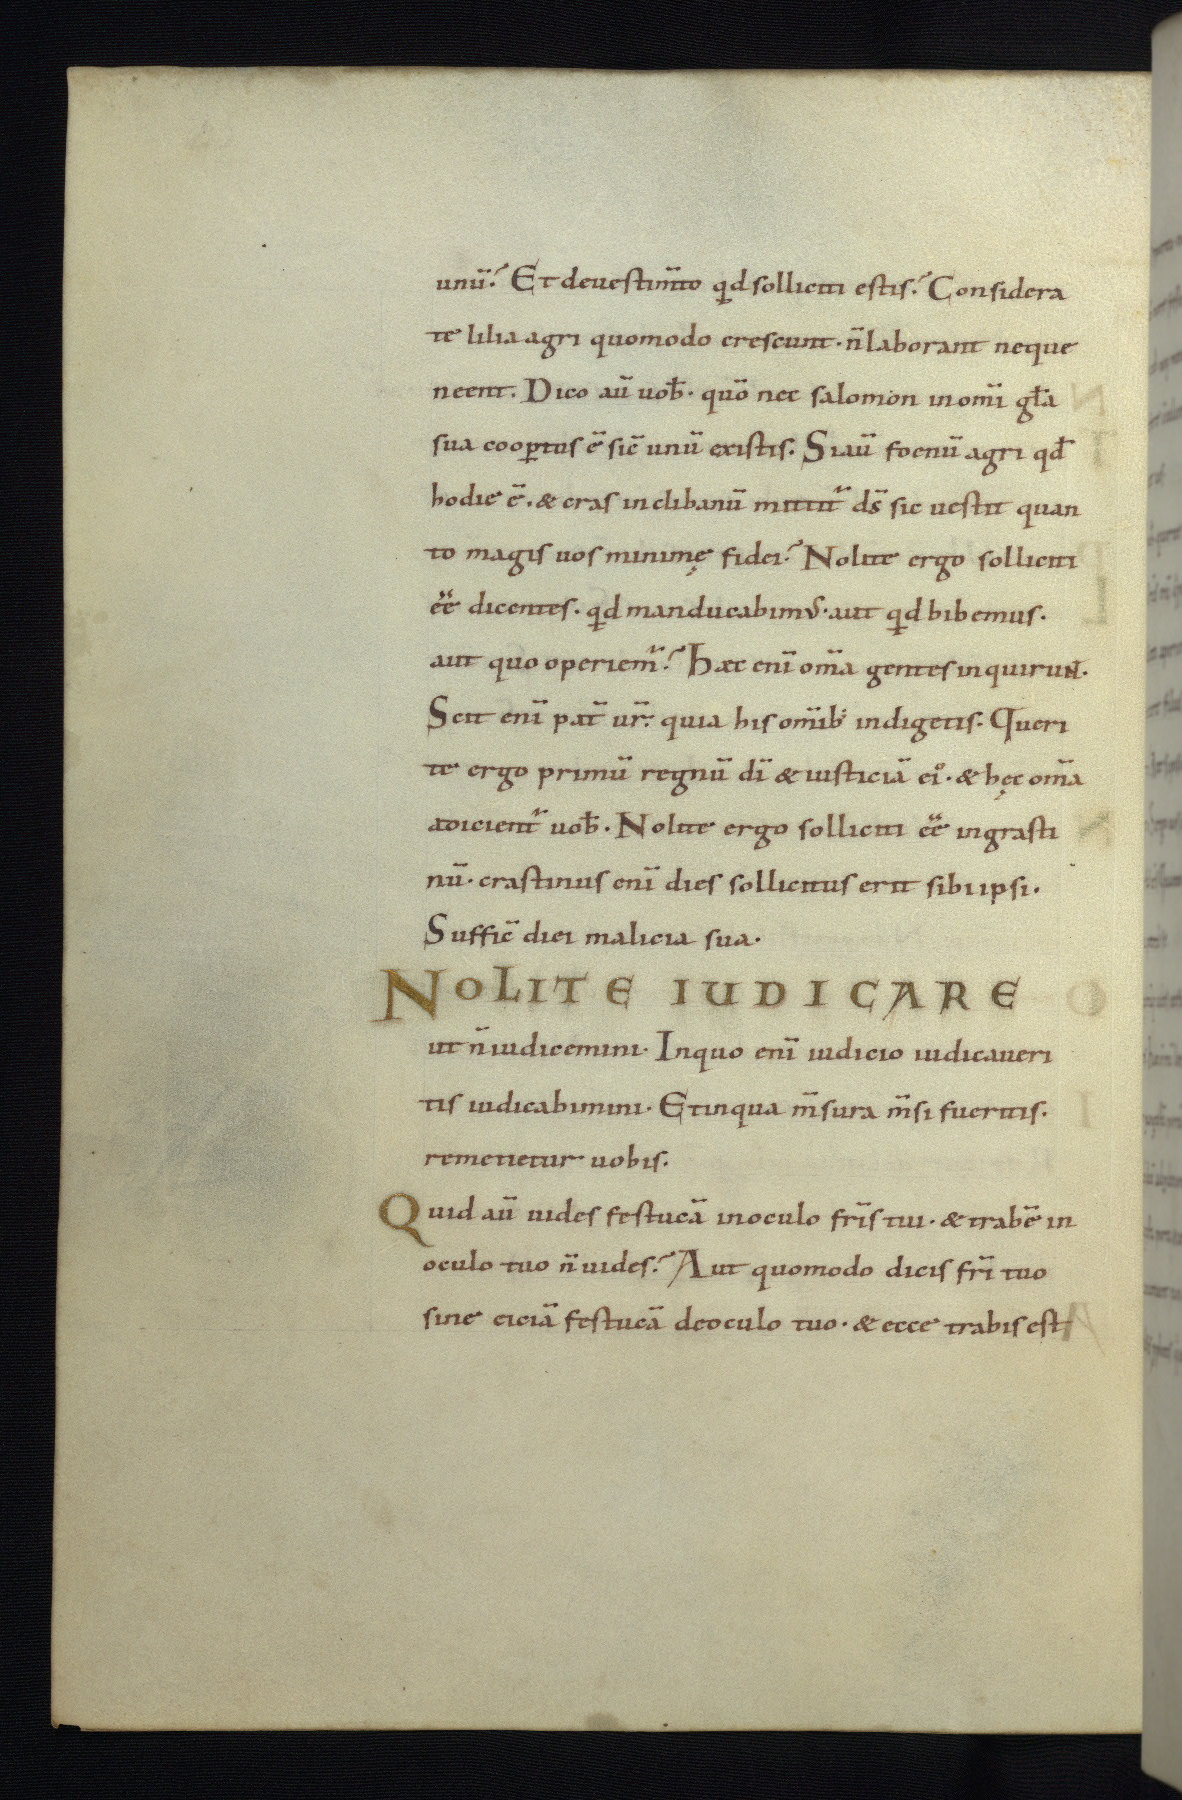 unū? Et deuestim̄to qd solliciti estis? Considera
te lilia agri quomodo crescunt · n̄ laborant neque
neent. Dico aū uob̄ · quō nec salomon in om̄i gl̄a
sua coop̱tus ē sic̄ unū existis. Si aū foenū agri qd̄
hodie ē · & cras in clibanū mittit᷑ ds̄ sic uestit quan
to magis uos minimę fidei? Nolite ergo solliciti
ēē dicentes · qd manducabimꝰ · aut qd bibemus ·
aut quo operiem᷑? Haec eni̅ om̄a gentes inquirunt ·
Scit eni̅ pat̄ ur̄ · quia his om̄ib; indigetis. Queri
te ergo primū regnū dī & iusticiā eiꝰ · & hęc om̄a
adicient᷑ uob̄ · Nolite ergo solliciti ēē ingrasti
nū · crastinus eni̅ dies sollicitus erit sibi ipsi ·
Suffic̄ diei malicia sua ·
NOLITE IUDICARE
ut n̄ iudicemini · Inquo eni̅ iudicio iudicaueri
tis iudicabimini · Et inqua m̄sura m̄si fueritis ·
remetietur uobis ·
Quid aū uides festucā in oculo fr̄is tui · & trabē in
oculo tuo n̄ uides? Aut quomodo dicis fr̄i tuo
sine eiciā festucā deoculo tuo · & ecce trabis est